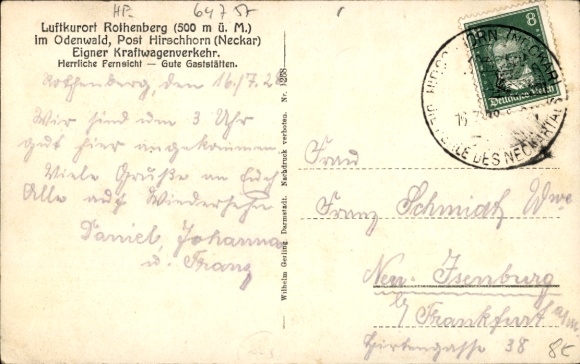 HP. 647
Luftkurort Rothenberg (500 m ü. M.)
im Odenwald, Post Hirschhorn (Neckar)
Eigner Kraftwagenverkehr.
Herrliche Fernsicht — Gute Gaststätten.
Rothenberg, den 16./7. 28
Wir sind um 3 Uhr
gut hier angekommen
Viele Grüße an Euch
Alle auf Wiedersehn
Daniel, Johanna
u. Franz
Wilhelm Gerling, Darmstadt. Nachdruck verboten. Nr. 1268
8
Deutsches Reich
HIRSCHHORN (NECKAR)
PERLE DES NECKARTALS
Frau
Franz Schmidt Wwe
Neu-Isenburg
b/ Frankfurt a/M.
Hirtengasse 38
8c